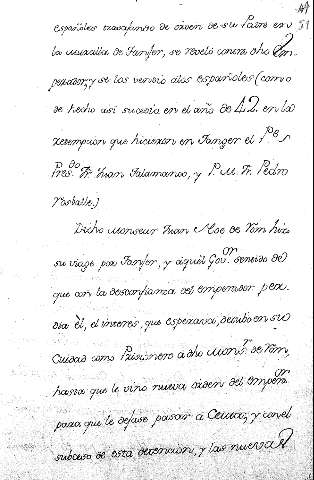 51
españoles trabajando de orden de su Padre en
la muralla de Tanfer, se reveló contra dho Em-
perador, y se los vendio alos españoles (como
de hecho asi sucedio en el año de 42 en la
redempcion que hicieron en Tanger el P.e
Pres.do Fr. Juan Salamanco, y P. M. Fr. Pedro
Rosvalle.)
Dicho Monseur Juan Aloe de Tom hizo
su viage por Tanfer, y aquel Gov.or sentido de
que con la desconfianza del emperador per-
dia él, el interes, que esperava, detubo en su
Ciudad como Prisionero a dho Mons.r de Tom,
hasta que le vino nueva orden del emper.or
para que le dejase pasar a Ceuta; y con el
subceso de esta detencion, y las nuevas